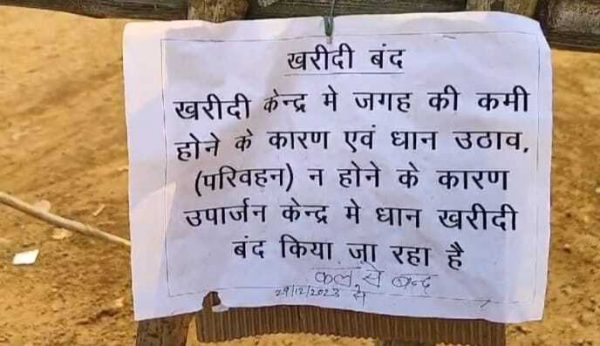 खरीदी बंद
खरीदी केन्द्र मे जगह की कमी
होने के कारण एवं धान उठाव,
(परिवहन) न होने के कारण
उपार्जन केन्द्र मे धान खरीदी
बंद किया जा रहा है
कल से बन्द
29/12/2023 से